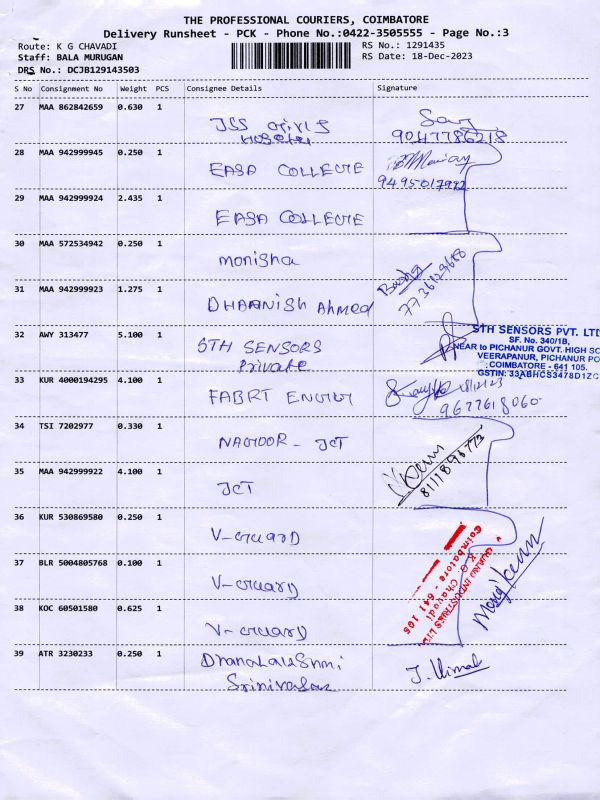 THE PROFESSIONAL COURIERS, COIMBATORE
Delivery Runsheet - PCK - Phone No.:0422-3505555 - Page No.:3
Route: K G CHAVADI
RS No.: 1291435
Staff: BALA MURUGAN
RS Date: 18-Dec-2023
DRS No.: DCJB129143503
S No Consignment No Weight PCS Consignee Details Signature
27 MAA 862842659 0.630 1
JSS Girls
Hostel
9047786218
28 MAA 942999945 0.250 1
EASA COLLEGE
29 MAA 942999924 2.435 1
EASA COLLEGE
30 MAA 572534942 0.250 1
monisha
31 MAA 942999923 1.275 1
DHAANISH Ahmed
32 AWY 313477 5.100 1
STH SENSORS
Private
STH SENSORS PVT. LTD
SF. No. 340/1B,
NEAR to PICHANUR GOVT. HIGH SC
VEERAPANUR, PICHANUR PO
COIMBATORE - 641 105.
GSTIN: 33ABHCS3478D1ZC
33 KUR 4000194295 4.100 1
9677618060
34 TSI 7202977 0.330 1
JCT
8111896772
35 MAA 942999922 4.100 1
JCT
36 KUR 530869580 0.250 1
V-GUARD
37 BLR 5004805768 0.100 1
V-GUARD
V GUARD INDUSTRIES LTD
K.G. Chavadi
Coimbatore - 641 105
38 KOC 60501580 0.625 1
V-GUARD
39 ATR 3230233 0.250 1
Dhanalakshmi
Srinivasan
J. Vimal